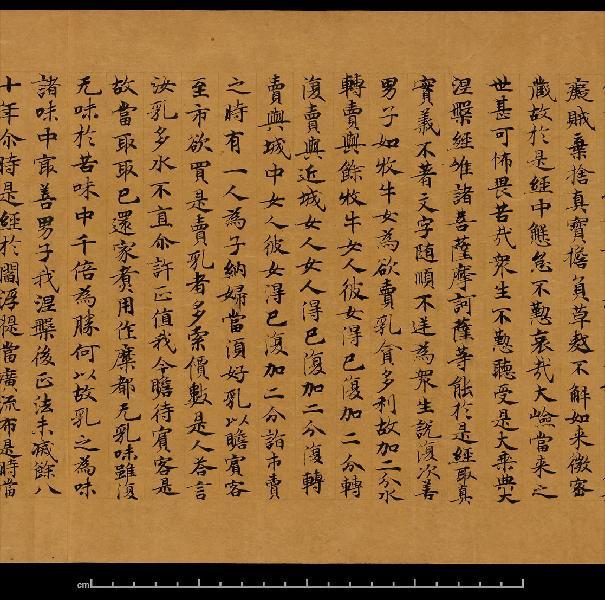 癡賊棄捨真寶擔負草𥝖不解如來微密
藏故於是經中懈怠不懃哀哉大嶮當來之
世甚可怖畏苦哉眾生不懃聽受是大乘典大
涅槃經唯諸菩薩摩訶薩等能於是經取真
實義不著文字隨順不逆為眾生說復次善
男子如牧牛女為欲賣乳貪多利故加二分水
轉賣與餘牧牛女人彼女得已復加二分轉
復賣與近城女人女人得已復加二分復轉
賣與城中女人彼女得已復加二分詣市賣
之時有一人為子納婦當須好乳以贍賓客
至市欲買是賣乳者多索價數是人答言
汝乳多水不直尒許正值我今贍待賓客是
故當取取已還家煮用作糜都无乳味雖復
无味於苦味中千倍為勝何以故乳之為味
諸味中冣善男子我涅槃後正法未滅餘八
十年尒時是經於閻浮提當廣流布是時當